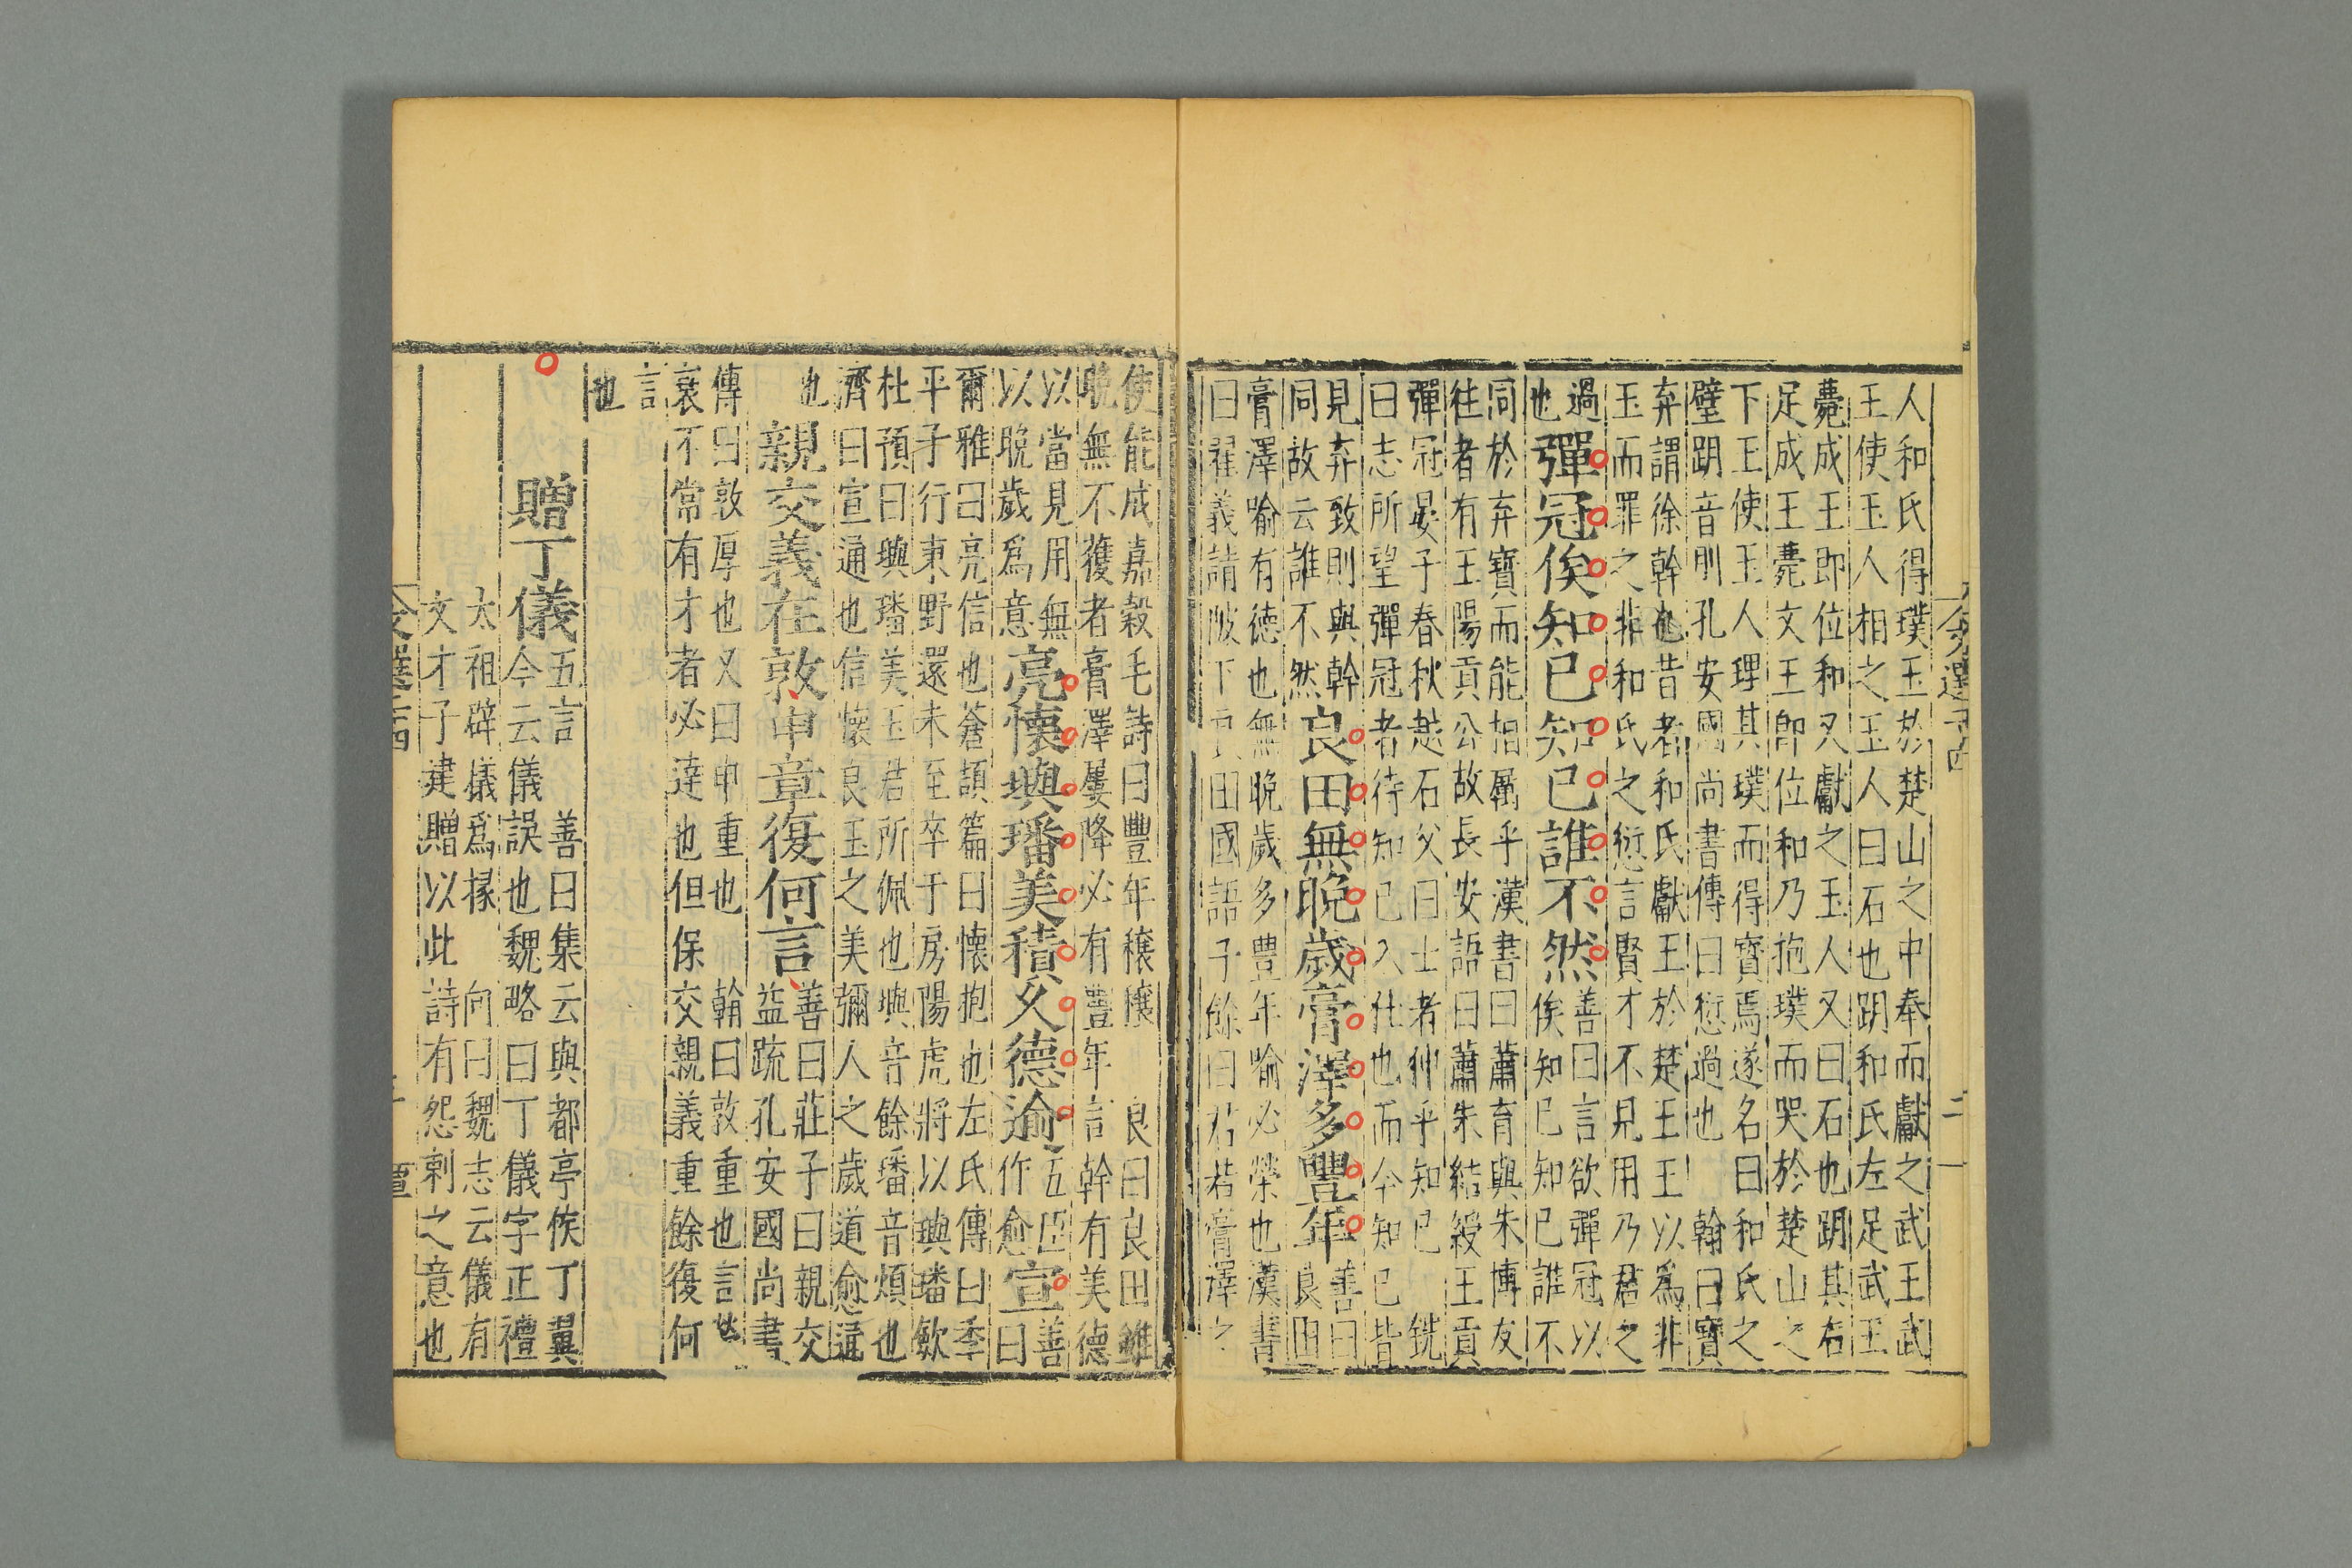 人和氏得璞玉於楚山之中奉而獻之武王武
王使玉人相之玉人曰石也刖和氏左足武王
薨成王即位和又獻之玉人又曰石也刖其右
足成王薨文王即位和乃抱璞而哭於楚山之
下王使玉人理其璞而得寶焉遂名曰和氏之
璧刖音刖孔安國尚書傳曰愆過也 翰曰寶
弃謂徐幹也昔者和氏獻王於楚王王以爲非
玉而罪之非和氏之愆言賢才不見用乃君之
過
也
彈冠俟知已知已誰不然
善曰言欲彈冠以
俟知已知已誰不
同於弃寶而能相属乎漢書曰蕭育與朱博友
往者有王陽貢公故長安語曰蕭朱結綬王貢
彈冠晏子春秋越石父曰士者伸乎知已 銑
曰志所望彈冠者待知已入仕也而今知已皆
見弃致則與幹
同故云誰不然
良田無晚歲膏澤多豐年
善曰
良田
膏澤喻有德也無晚歲多豊年喻必榮也漢書
曰翟義請陂下良田國語子餘曰君若膏澤之
使能成嘉穀毛詩曰豐年穣穣 良曰良田雖
晚無不獲者膏澤屢降必有豊年言幹有美德
以當見用無
以晚歲爲意
亮懷璵璠美積久德逾
五臣
作愈
宣
善
曰
爾雅曰亮信也蒼頡篇曰懷抱也左氏傳曰季
平子行東野還未至卒于房陽虎將以璵璠斂
杜預曰璵璠美玉君所佩也璵音餘璠音煩也
濟曰宣通也信懷良玉之美彌人之歲道愈
也
親交義在敦申章復何言
善曰莊子曰親交
益疏孔安國尚書
傳曰敦厚也又曰申重也 翰曰敦重也言
哀不常有才者必達也但保交親義重餘復何
言
也
贈丁儀
五言 善曰集云與都亭侯丁翼
今云儀誤也魏略曰丁儀字正禮
太祖辟儀爲掾 向曰魏志云儀有
文才子建贈以此詩有怨刺之意也